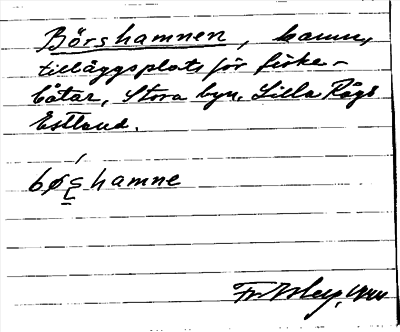 Börshamnen, hamn,
tilläggsplats för fiske-
båtar, Stora byn, Lilla Rågö
Estland.
bøʂhamne